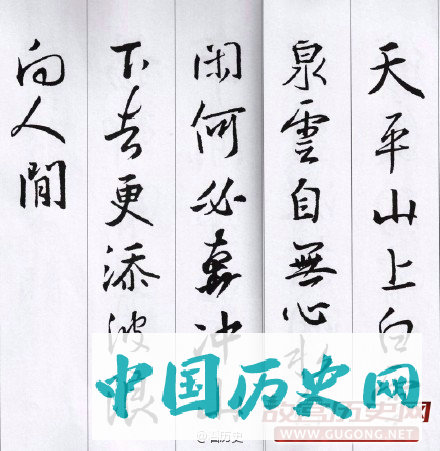 天平山上白
泉雲自無心水
閑何必奔冲山
下去更添波浪
向人間
中国历史网
故宫历史网
WWW.GUCONG.NET